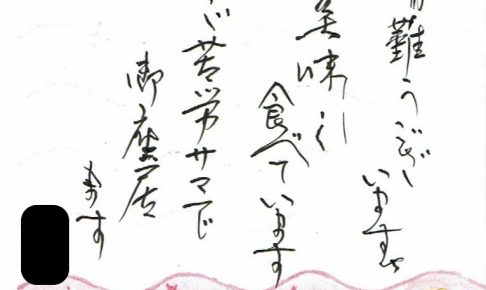 難うござ
います
美味しく
食べています
苦労サマで
御座居
ます